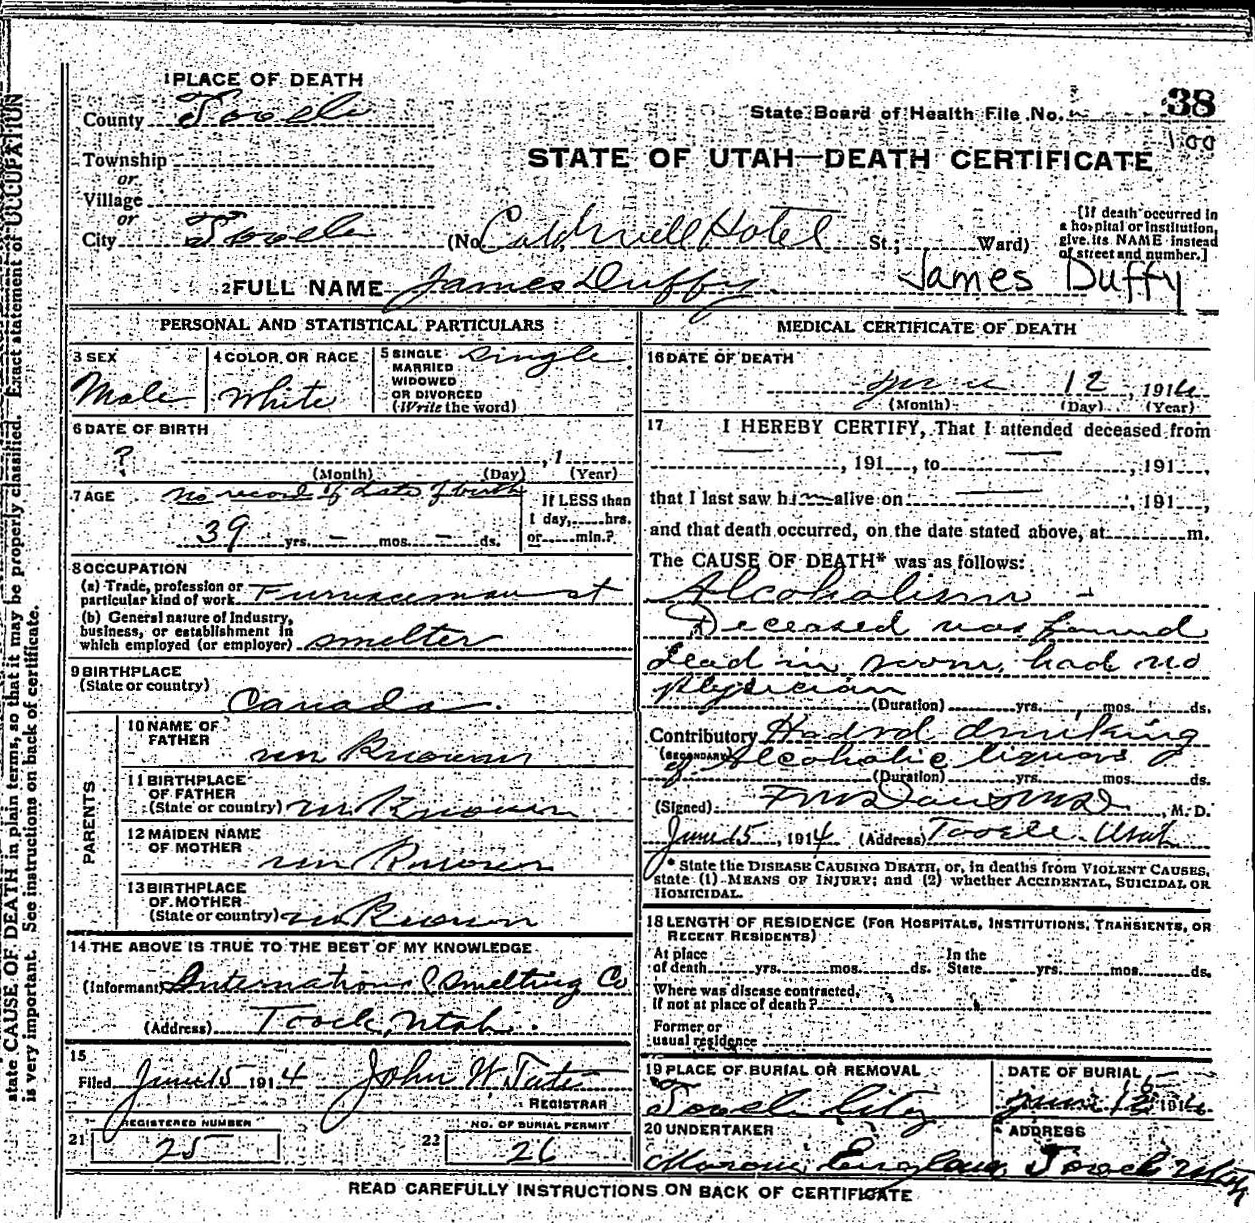 1 PLACE OF DEATH
County Tooele
State Board of Health File No. 38
100
Township
or
Village
or
City Tooele
STATE OF UTAH—DEATH CERTIFICATE
(No. Caldwell Hotel St.; Ward)
[If death occurred in
a hospital or institution,
give its NAME instead
of street and number.]
2 FULL NAME James Duffy. James Duffy
PERSONAL AND STATISTICAL PARTICULARS
3 SEX
Male
4 COLOR OR RACE
White
5 SINGLE
MARRIED
WIDOWED
OR DIVORCED
(Write the word)
Single
6 DATE OF BIRTH
? , 1
(Month) (Day) (Year)
7 AGE no record of date of birth
39 yrs. – mos. – ds.
If LESS than
1 day, hrs.
or min.?
8 OCCUPATION
(a) Trade, profession or
particular kind of work Furnaceman at
(b) General nature of Industry,
business, or establishment in
which employed (or employer) smelter
9 BIRTHPLACE
(State or country)
Canada.
PARENTS
10 NAME OF
FATHER
un Known
11 BIRTHPLACE
OF FATHER
(State or country) un Known
12 MAIDEN NAME
OF MOTHER
un Known
13 BIRTHPLACE
OF MOTHER
(State or country) un Known
14 THE ABOVE IS TRUE TO THE BEST OF MY KNOWLEDGE
(Informant) International Smelting Co
(Address) Tooele, Utah.
15
Filed June 15 1914 John W. Tate
REGISTRAR
REGISTERED NUMBER
21 25
NO. OF BURIAL PERMIT
22 26
MEDICAL CERTIFICATE OF DEATH
16 DATE OF DEATH
June 12, 1914
(Month) (Day) (Year)
17 I HEREBY CERTIFY, That I attended deceased from
, 191 , to , 191 ,
that I last saw him alive on , 191 ,
and that death occurred, on the date stated above, at m.
The CAUSE OF DEATH* was as follows:
Alcoholism -
Deceased was found
dead in room, had no
physician
(Duration) yrs. mos. ds.
Contributory Had drinking
(SECONDARY) of Alcoholic liquors
(Duration) yrs. mos. ds.
(Signed) , M. D.
June 15, 1914 (Address) Tooele Utah
* State the DISEASE CAUSING DEATH, or, in deaths from VIOLENT CAUSES,
state (1) MEANS OF INJURY; and (2) whether ACCIDENTAL, SUICIDAL OR
HOMICIDAL.
18 LENGTH OF RESIDENCE (FOR HOSPITALS, INSTITUTIONS, TRANSIENTS, OR
RECENT RESIDENTS)
At place
of death yrs. mos. ds.
In the
State yrs. mos. ds.
Where was disease contracted,
If not at place of death?
Former or
usual residence
19 PLACE OF BURIAL OR REMOVAL
Tooele City
DATE OF BURIAL
June 15 1914
20 UNDERTAKER
Maroni England
ADDRESS
Tooele Utah
READ CAREFULLY INSTRUCTIONS ON BACK OF CERTIFICATE
state CAUSE OF DEATH in plain terms, so that it may be properly classified. Exact statement of OCCUPATION
is very important. See instructions on back of certificate.